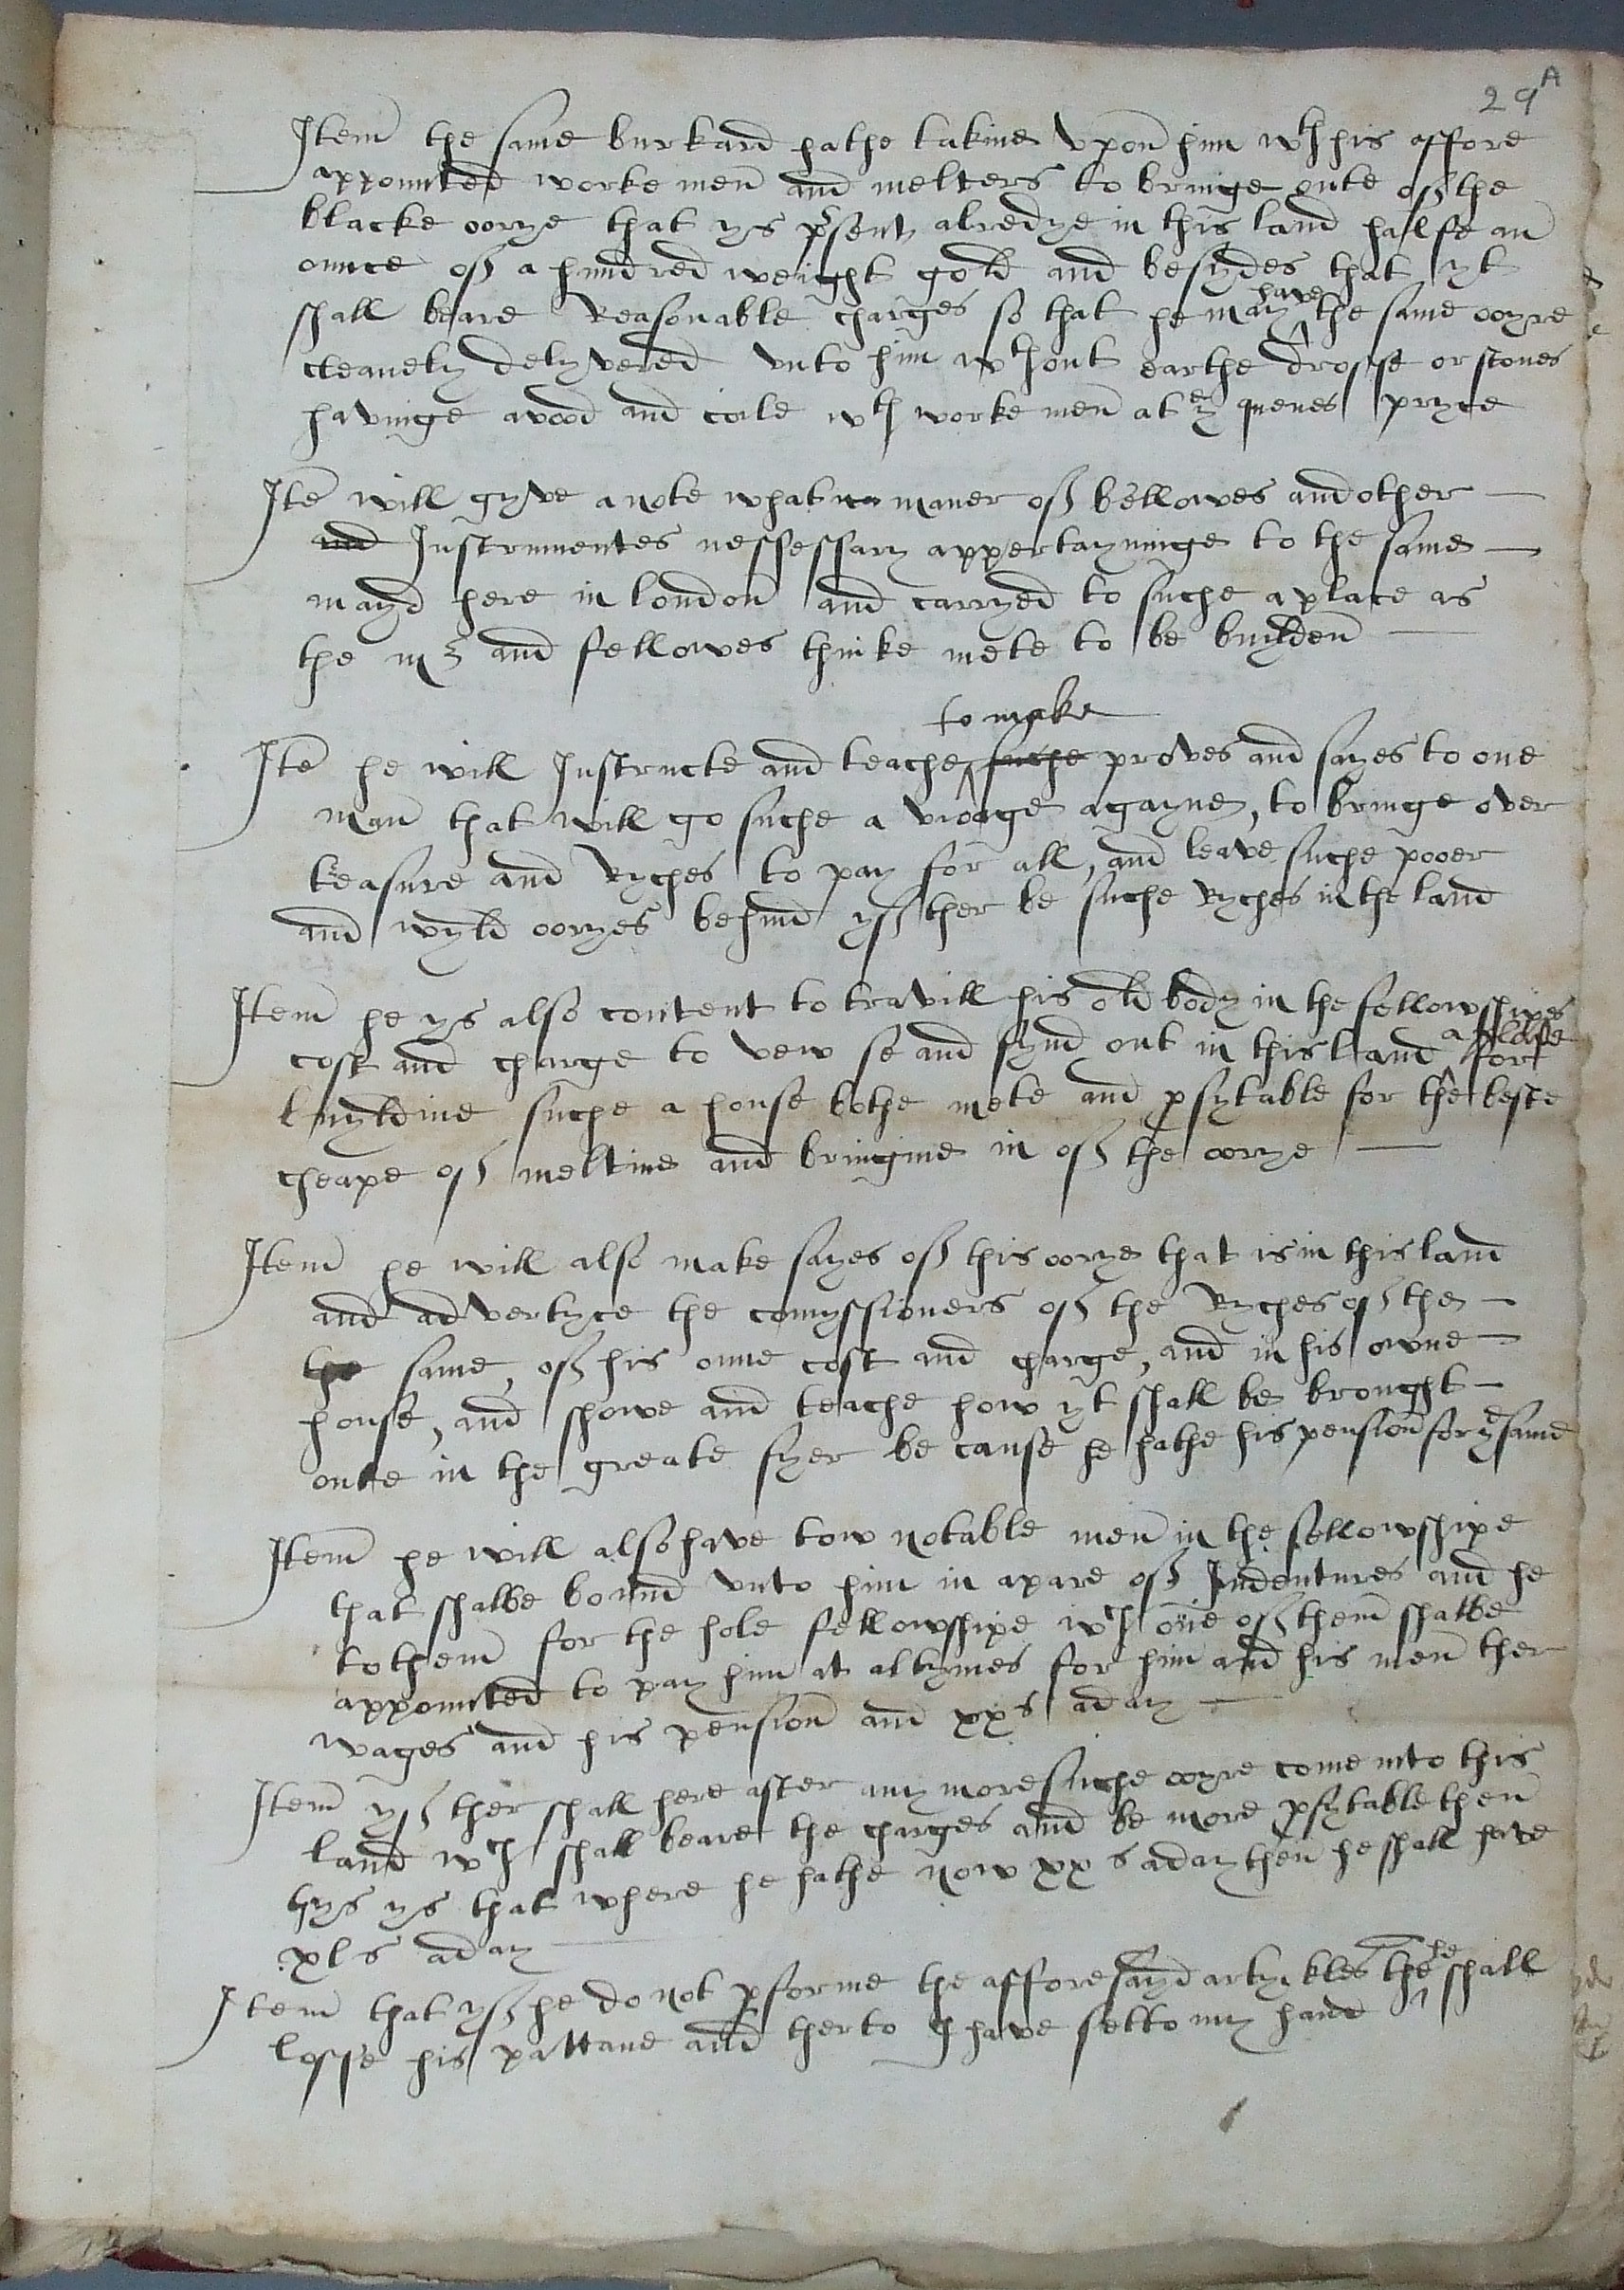 29 A
Item the same burkard hathe takine vpon him wth his affore
appointed worke men and melters to bringe oute off the
blacke oorye that ys psent alredye in this land halfe an
ounce off a hundred weight gold and besydes that yt
shall beare Reasonable charges so that he may have the same ooyre
cleanely delyvered unto him wthout earthe drosse or stones
havinge wood and cole wth worke men at ye quenes pryce
Ite will gyve a note what maner off bellowes and other
and Instrumentes nessessary appertayninge to the same
mayd here in london and carryed to suche a place as
the mr and fellowes thinke mete to be buylden
to make
Ite he will Instructe and teache suche proves and sayes to one
man that will go suche a vioage agayne, to bringe over
treasure and Ryches to pay for all, and leave suche pooer
and wyld ooryes behind yff ther be suche Ryches in the land
Item he ys also content to travill his old body in the fellowshipes
cost and charge to vew se and fynd out in this land a place for
buyldine suche a house bothe mete and pfytable for the beste
cheape off meltine and bringine in off the oorye
Item he will also make sayes off this oorye that is in this land
and advertyce the comyssioners off the Ryches off the
the same, off his oune cost and charge, and in his owne
house, and showe and teache how yt shall be brought
oute in the greate fyer be cause he hathe his pension for ye same
Item he will also have tow notable men in the fellowshipe
that shalbe bound vnto him in a pare off Indentures and he
to them for the hole fellowshipe wch one off them shalbe
appointed to pay him at altymes for him and his men ther
wages and his pension and xxs a day
Item yff ther shall here after any more suche ooyre come into this
land wch shall beare the charges and be more pfytable then
thys ys that where he hathe now xx s a day then he shall have
xl s a day
Item that yff he do not pforme the afforesayd artyckles the he shall
losse his pattane and therto I have setto my hand